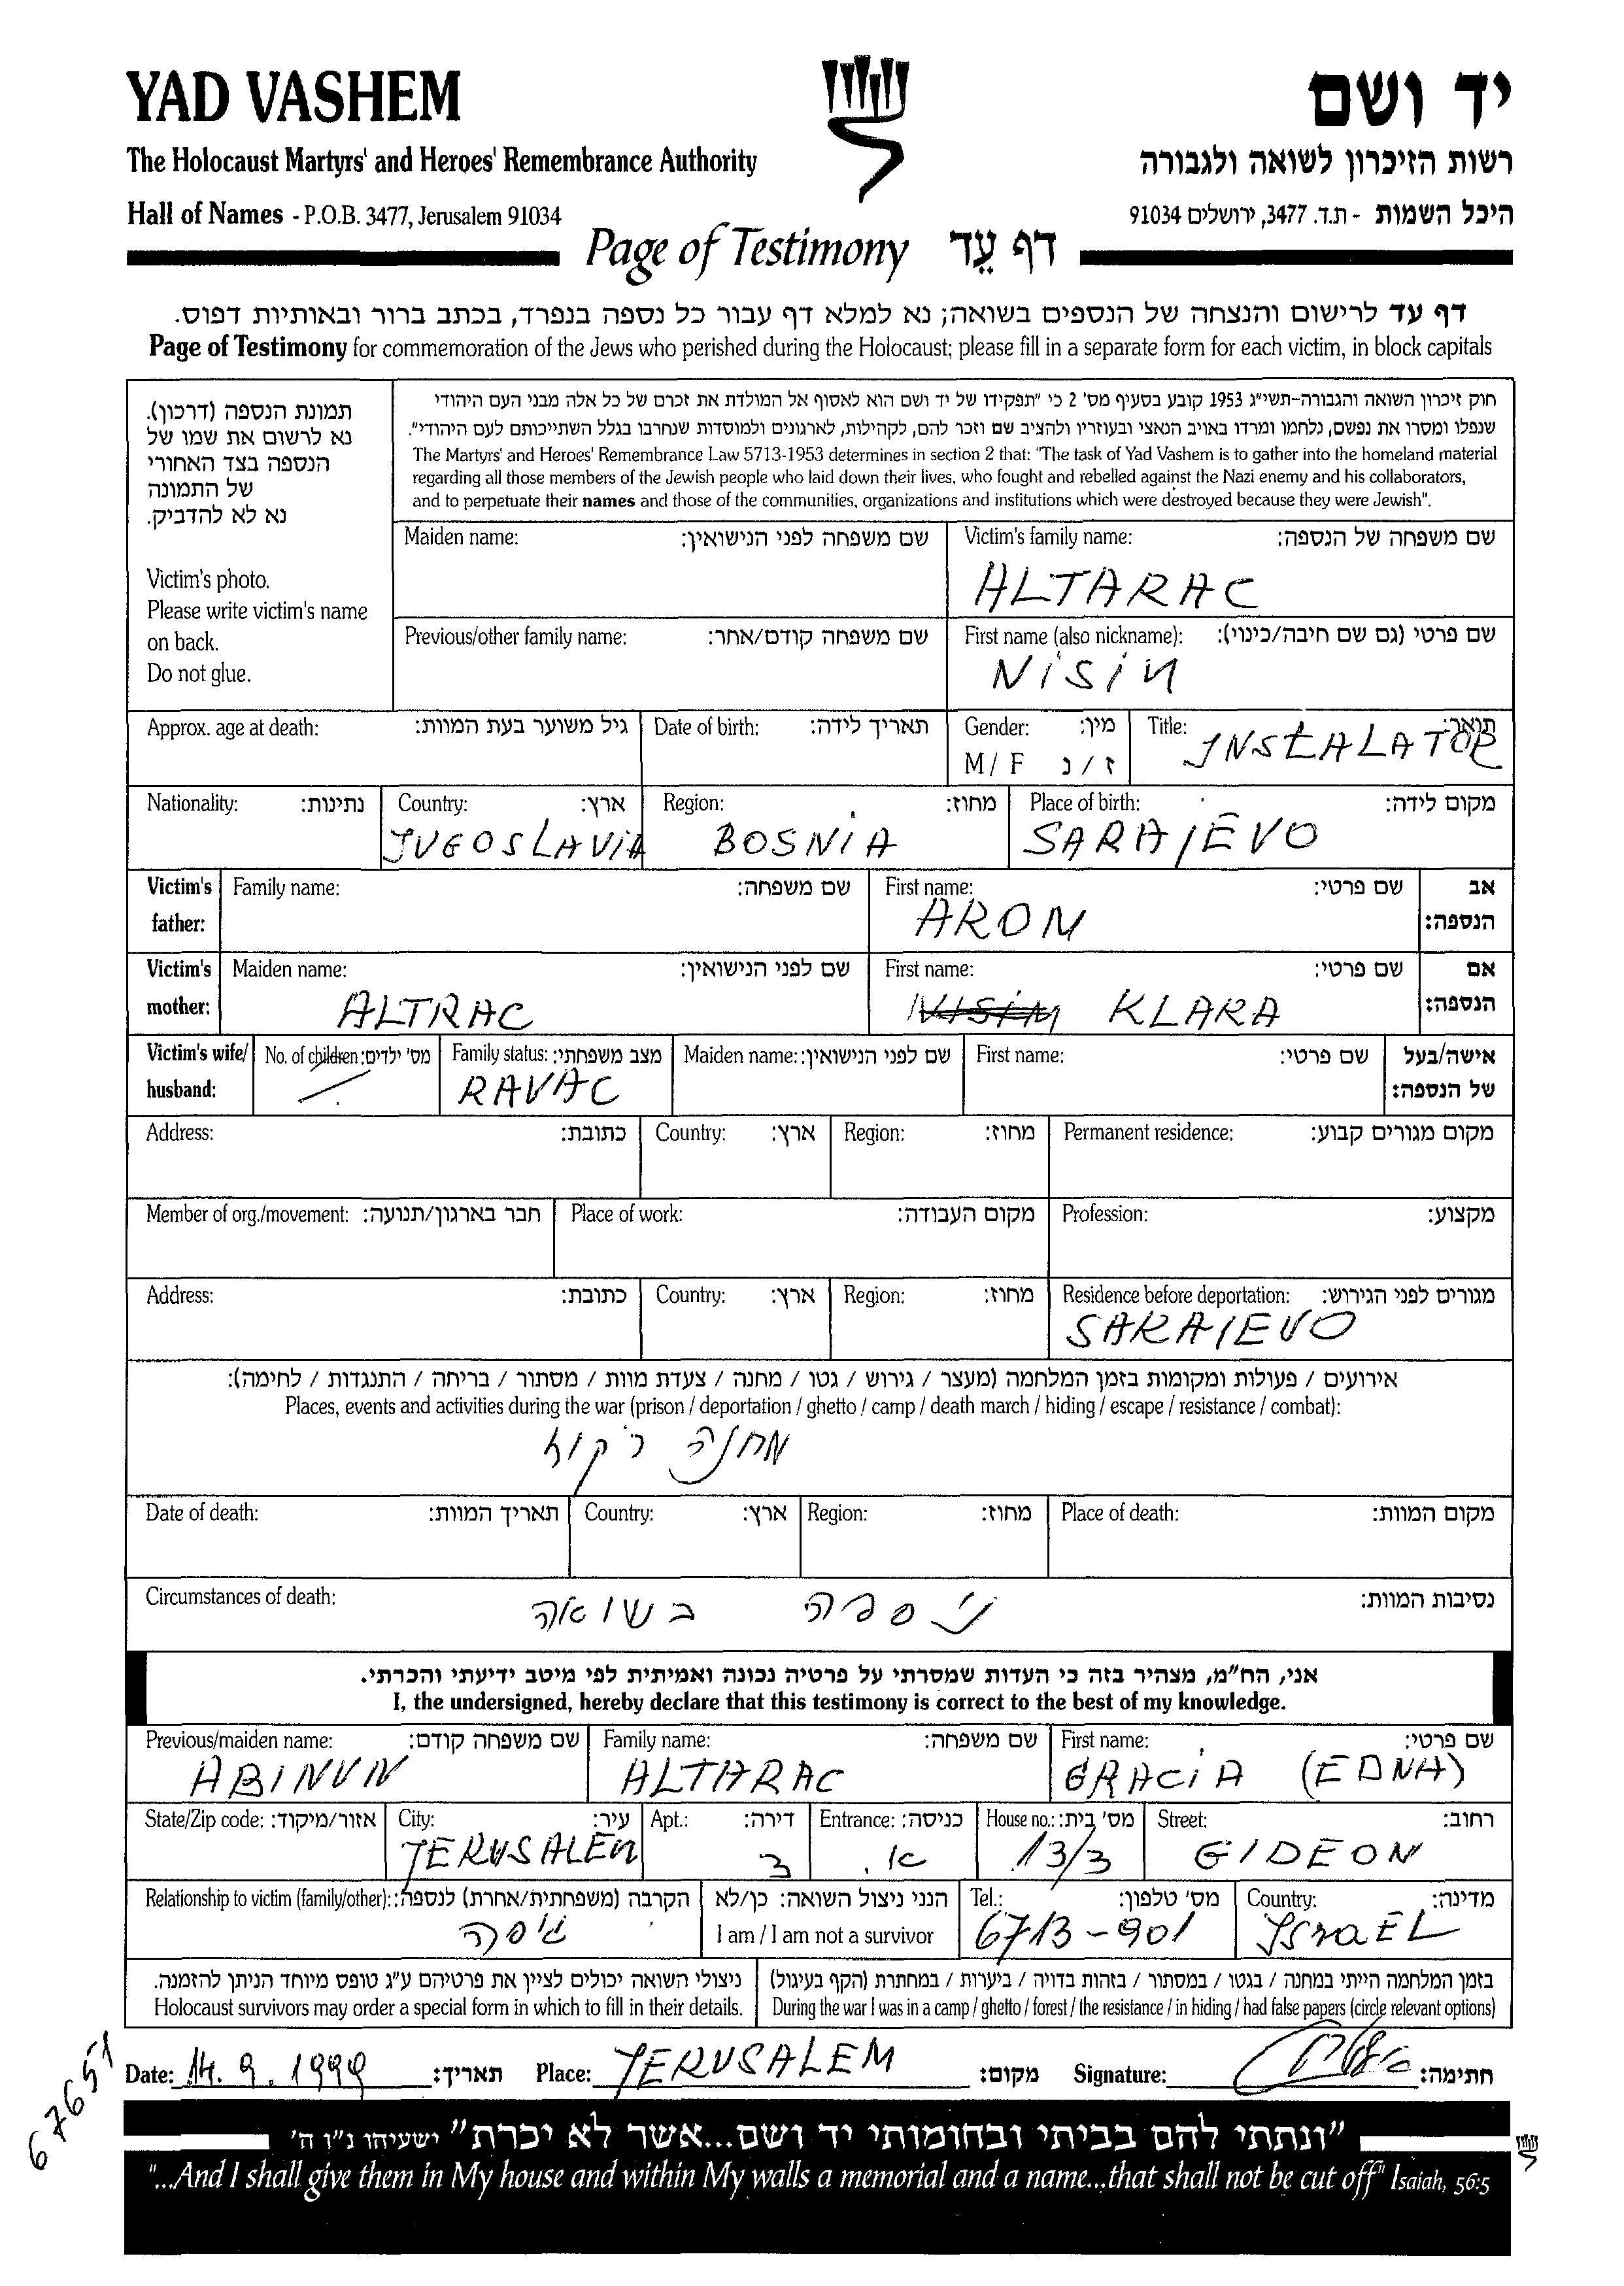 YAD VASHEM
יד ושם
The Holocaust Martyrs' and Heroes' Remembrance Authority
רשות הזיכרון לשואה ולגבורה
Hall of Names - P.O.B. 3477, Jerusalem 91034
היכל השמות - ת.ד. 3477, ירושלים 91034
Page of Testimony דף עֵד
דף עד לרישום והנצחה של הנספים בשואה; נא למלא דף עבור כל נספה בנפרד, בכתב ברור ובאותיות דפוס.
Page of Testimony for commemoration of the Jews who perished during the Holocaust; please fill in a separate form for each victim, in block capitals
תמונת הנספה (דרכון).
נא לרשום את שמו של
הנספה בצד האחורי
של התמונה
נא לא להדביק.
Victim's photo.
Please write victim's name
on back.
Do not glue.
חוק זיכרון השואה והגבורה-תשי"ג 1953 קובע בסעיף מס' 2 כי "תפקידו של יד ושם הוא לאסוף אל המולדת את זכרם של כל אלה מבני העם היהודי
שנפלו ומסרו את נפשם, נלחמו ומרדו באויב הנאצי ובעוזריו ולהציב שם וזכר להם, לקהילות, לארגונים ולמוסדות שנחרבו בגלל השתייכותם לעם היהודי".
The Martyrs' and Heroes' Remembrance Law 5713-1953 determines in section 2 that: "The task of Yad Vashem is to gather into the homeland material
regarding all those members of the Jewish people who laid down their lives, who fought and rebelled against the Nazi enemy and his collaborators,
and to perpetuate their names and those of the communities, organizations and institutions which were destroyed because they were Jewish".
Maiden name: שם משפחה לפני הנישואין:
Victim's family name: שם משפחה של הנספה:
ALTARAC
Previous/other family name: שם משפחה קודם/אחר:
First name (also nickname): שם פרטי (גם שם חיבה/כינוי):
NISIN
Approx. age at death: גיל משוער בעת המוות:
Date of birth: תאריך לידה:
Gender: מין:
M / F ז / נ
Title: תואר:
INSTALATOR
Nationality: נתינות:
Country: ארץ:
JUGOSLAVIA
Region: מחוז:
BOSNIA
Place of birth: מקום לידה:
SARAJEVO
Victim's father: Family name: שם משפחה:
First name: שם פרטי:
ARON
אב הנספה:
Victim's mother: Maiden name: שם לפני הנישואין:
ALTRAC
First name: שם פרטי:
NISIM KLARA
אם הנספה:
Victim's wife/ husband: No. of children: מס' ילדים:
Family status: מצב משפחתי:
RAVAC
Maiden name: שם לפני הנישואין:
First name: שם פרטי:
אישה/בעל של הנספה:
Address: כתובת:
Country: ארץ:
Region: מחוז:
Permanent residence: מקום מגורים קבוע:
Member of org./movement: חבר בארגון/תנועה:
Place of work: מקום העבודה:
Profession: מקצוע:
Address: כתובת:
Country: ארץ:
Region: מחוז:
Residence before deportation: מגורים לפני הגירוש:
SARAJEVO
אירועים / פעולות ומקומות בזמן המלחמה (מעצר / גירוש / גטו / מחנה / צעדת מוות / מסתור / בריחה / התנגדות / לחימה):
Places, events and activities during the war (prison / deportation / ghetto / camp / death march / hiding / escape / resistance / combat):
מחנה
Date of death: תאריך המוות:
Country: ארץ:
Region: מחוז:
Place of death: מקום המוות:
Circumstances of death: נסיבות המוות:
ניספה בשואה
אני, הח"מ, מצהיר בזה כי העדות שמסרתי על פרטיה נכונה ואמיתית לפי מיטב ידיעתי והכרתי.
I, the undersigned, hereby declare that this testimony is correct to the best of my knowledge.
Previous/maiden name: שם משפחה קודם:
ABINUN
Family name: שם משפחה:
ALTARAC
First name: שם פרטי:
GRACIA (EDNA)
State/Zip code: אזור/מיקוד:
City: עיר:
JERUSALEM
Apt.: דירה:
3
Entrance: כניסה:
א.
House no.: מס' בית:
13/3
Street: רחוב:
GIDEON
Relationship to victim (family/other): הקרבה (משפחתית/אחרת) לנספה:
גיסה
הנני ניצול השואה: כן/לא
I am / I am not a survivor
Tel.: מס' טלפון:
6713-901
Country: מדינה:
ISraEL
ניצולי השואה יכולים לציין את פרטיהם ע"ג טופס מיוחד הניתן להזמנה.
Holocaust survivors may order a special form in which to fill in their details.
בזמן המלחמה הייתי במחנה / בגטו / במסתור / בזהות בדויה / ביערות / במחתרת (הקף בעיגול)
During the war I was in a camp / ghetto / forest / the resistance / in hiding / had false papers (circle relevant options)
Date: 14.9.1999 תאריך: Place: JERUSALEM מקום: Signature: חתימה:
67651
"ונתתי להם בביתי ובחומותי יד ושם...אשר לא יכרת" ישעיהו נ"ו ה'
"...And I shall give them in My house and within My walls a memorial and a name...that shall not be cut off" Isaiah, 56:5